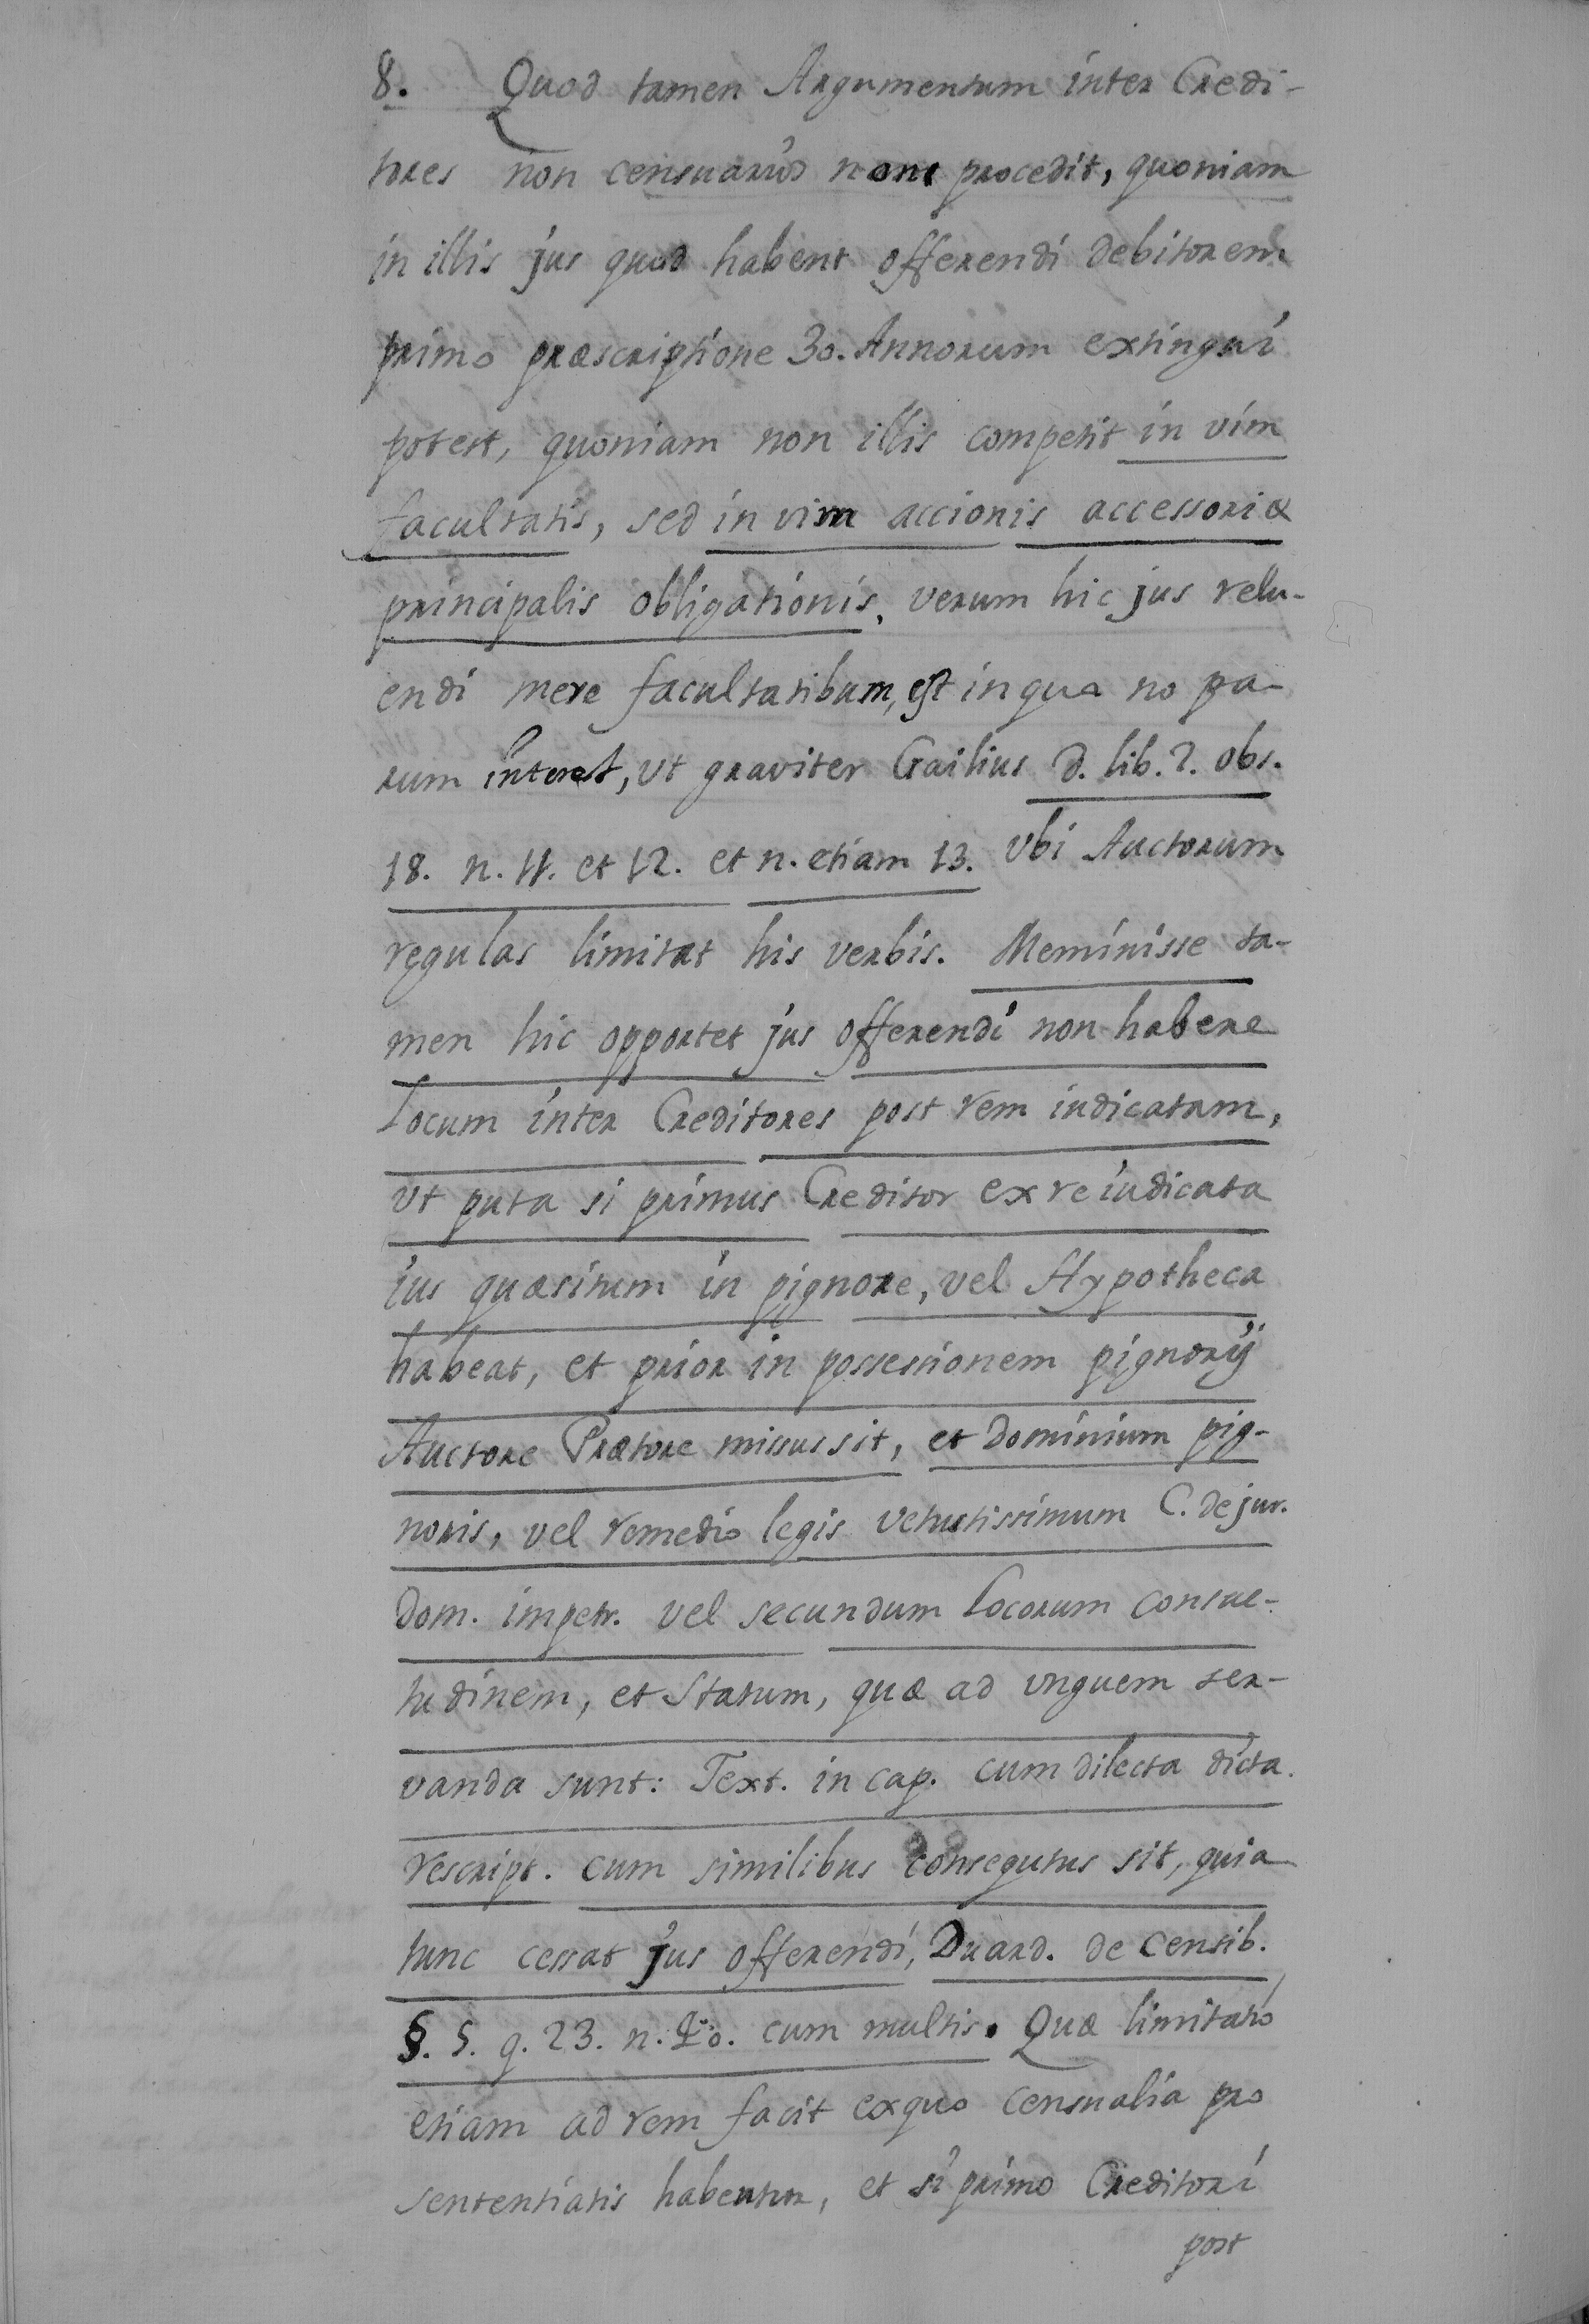 8. Quod tamen Argumentum inter Credi-
tores non censuarios non procedit, quoniam
in illis jus quod habent offerendi debitorem
primo præscriptione 30. Annorum extingui
potest, quoniam non illis competit in vim
facultatis, sed in vim accionis accessoriæ
principalis obligationis, verum hic jus relu-
endi mere facultatibum, est in qua no pa-
rum interest, vt graviter Gailius d. lib. 2. obs.
18. n. 11. et 12. et n. etiam 13. vbi Auctorum
regulas limitat his verbis. Meminisse ta-
men hic opportet jus offerendi non habere
Locum inter Creditores post rem iudicatam,
vt puta si primus Creditor ex re iudicata
ius quæsitum in pignore, vel Hypotheca
habeat, et prior in possessionem pignorij
Auctore Prætore missus sit, et dominium pig-
noris, vel remedio legis vetustissimum C. de jur.
dom. impetr. vel secundum Locorum consue-
tudinem, et Statum, quæ ad vnguem ser-
vanda sunt: Text. in cap. cum dilecta dicta.
rescript. cum similibus consequtus sit, quia
tunc cessat jus offerendi, Duard. de censib.
§. 5. q. 23. n. cum multis. Quæ limitatio
etiam ad rem facit exquo censualia pro
sententiatis habentur, et si primo Creditori
post